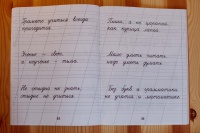 Грамоте учиться всегда
пригодится.
Учение – свет,
а неучение – тьма.
Не стыдно не знать,
стыдно не учиться.
Пиши, а не царапай,
как курица лапой.
Мало уметь читать,
надо уметь думать.
Без букв и грамматики
не учатся и математике.